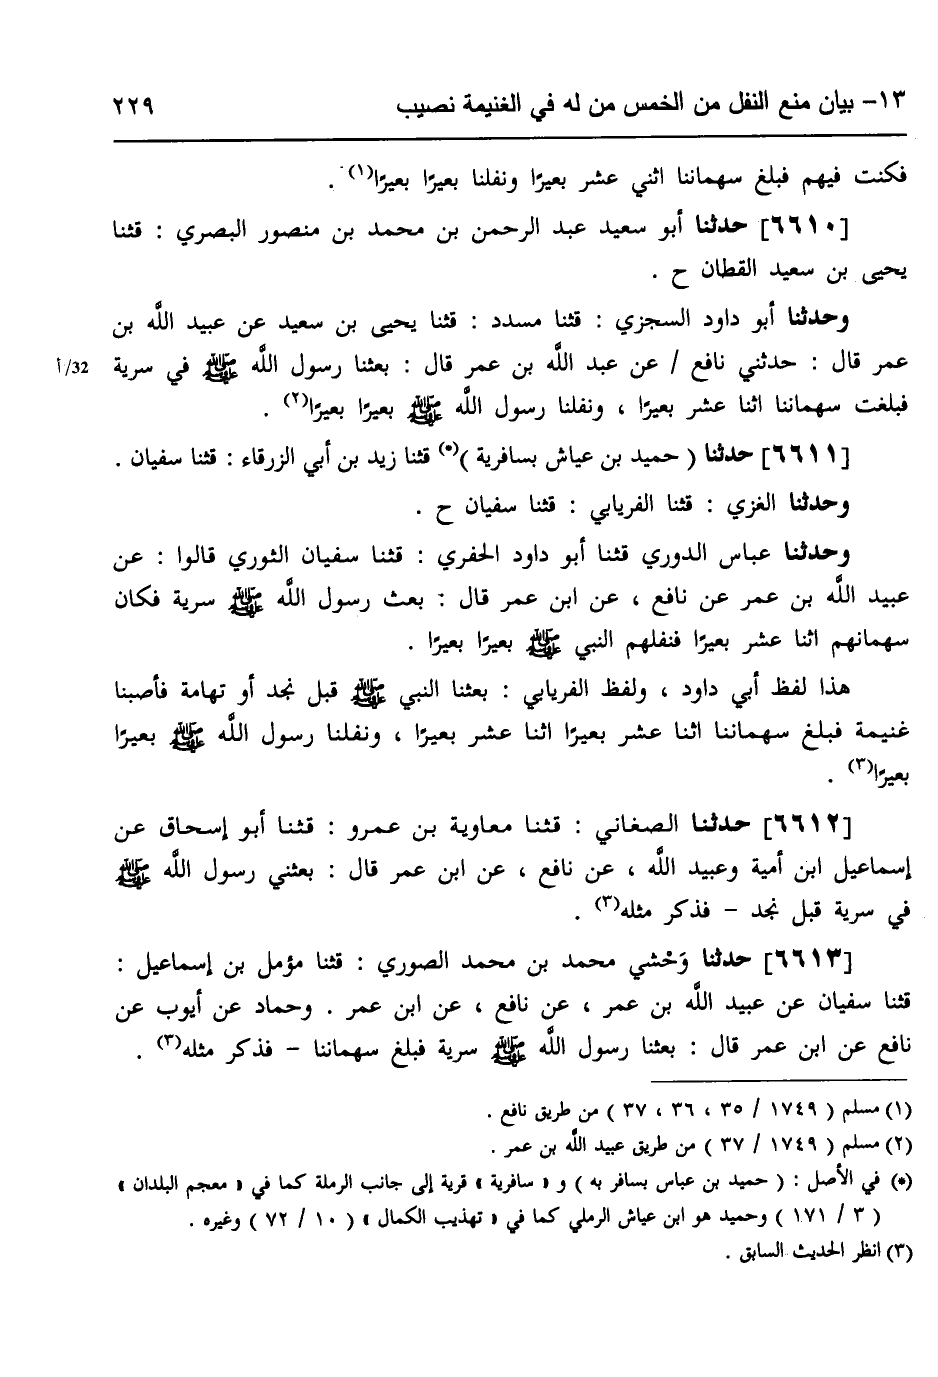 ١٣- بيان منع النفل من الخمس من له في الغنيمة نصيب ٢٢٩
فكنت فيهم فبلغ سهماننا اثني عشر بعيرًا ونفلنا بعيرًا بعيرًا(١) .
[٦٦١٠] حدثنا أبو سعيد عبد الرحمن بن محمد بن منصور البصري : قثنا
يحيى بن سعيد القطان ح .
وحدثنا أبو داود السجزي : قثنا مسدد : قثنا يحيى بن سعيد عن عبيد اللَّه بن
عمر قال : حدثني نافع / عن عبد اللَّه بن عمر قال : بعثنا رسول اللَّه ﷺ في سرية 32/أ
فبلغت سهماننا اثنا عشر بعيرًا ، ونفلنا رسول اللَّه ﷺ بعيرًا بعيرًا(٢) .
[٦٦١١] حدثنا ( حميد بن عياش بسافرية )(*) قثنا زيد بن أبي الزرقاء : قثنا سفيان .
وحدثنا الغزي : قثنا الفريابي : قثنا سفيان ح .
وحدثنا عباس الدوري قثنا أبو داود الحفري : قثنا سفيان الثوري قالوا : عن
عبيد اللَّه بن عمر عن نافع ، عن ابن عمر قال : بعث رسول اللَّه ﷺ سرية فكان
سهمانهم اثنا عشر بعيرًا فنفلهم النبي ﷺ بعيرًا بعيرًا .
هذا لفظ أبي داود ، ولفظ الفريابي : بعثنا النبي ﷺ قبل نجد أو تهامة فأصبنا
غنيمة فبلغ سهماننا اثنا عشر بعيرًا اثنا عشر بعيرًا ، ونفلنا رسول اللَّه ﷺ بعيرًا
بعيرًا(٣) .
[٦٦١٢] حدثنا الصغاني : قثنا معاوية بن عمرو : قثنا أبو إسحاق عن
إسماعيل ابن أمية وعبيد اللَّه ، عن نافع ، عن ابن عمر قال : بعثني رسول اللَّه ﷺ
في سرية قبل نجد - فذكر مثله(٣) .
[٦٦١٣] حدثنا وَحْشي محمد بن محمد الصوري : قثنا مؤمل بن إسماعيل :
قثنا سفيان عن عبيد اللَّه بن عمر ، عن نافع ، عن ابن عمر . وحماد عن أيوب عن
نافع عن ابن عمر قال : بعثنا رسول اللَّه ﷺ سرية فبلغ سهماننا - فذكر مثله(٣) .
(١) مسلم ( ١٧٤٩ / ٣٥ ، ٣٦ ، ٣٧ ) من طريق نافع .
(٢) مسلم ( ١٧٤٩ / ٣٧ ) من طريق عبيد اللَّه بن عمر .
(*) في الأصل : ( حميد بن عباس بسافر به ) و « سافرية » قرية إلى جانب الرملة كما في « معجم البلدان »
( ٣ / ١٧١ ) وحميد هو ابن عياش الرملي كما في « تهذيب الكمال » ( ١٠ / ٧٢ ) وغيره .
(٣) انظر الحديث السابق .